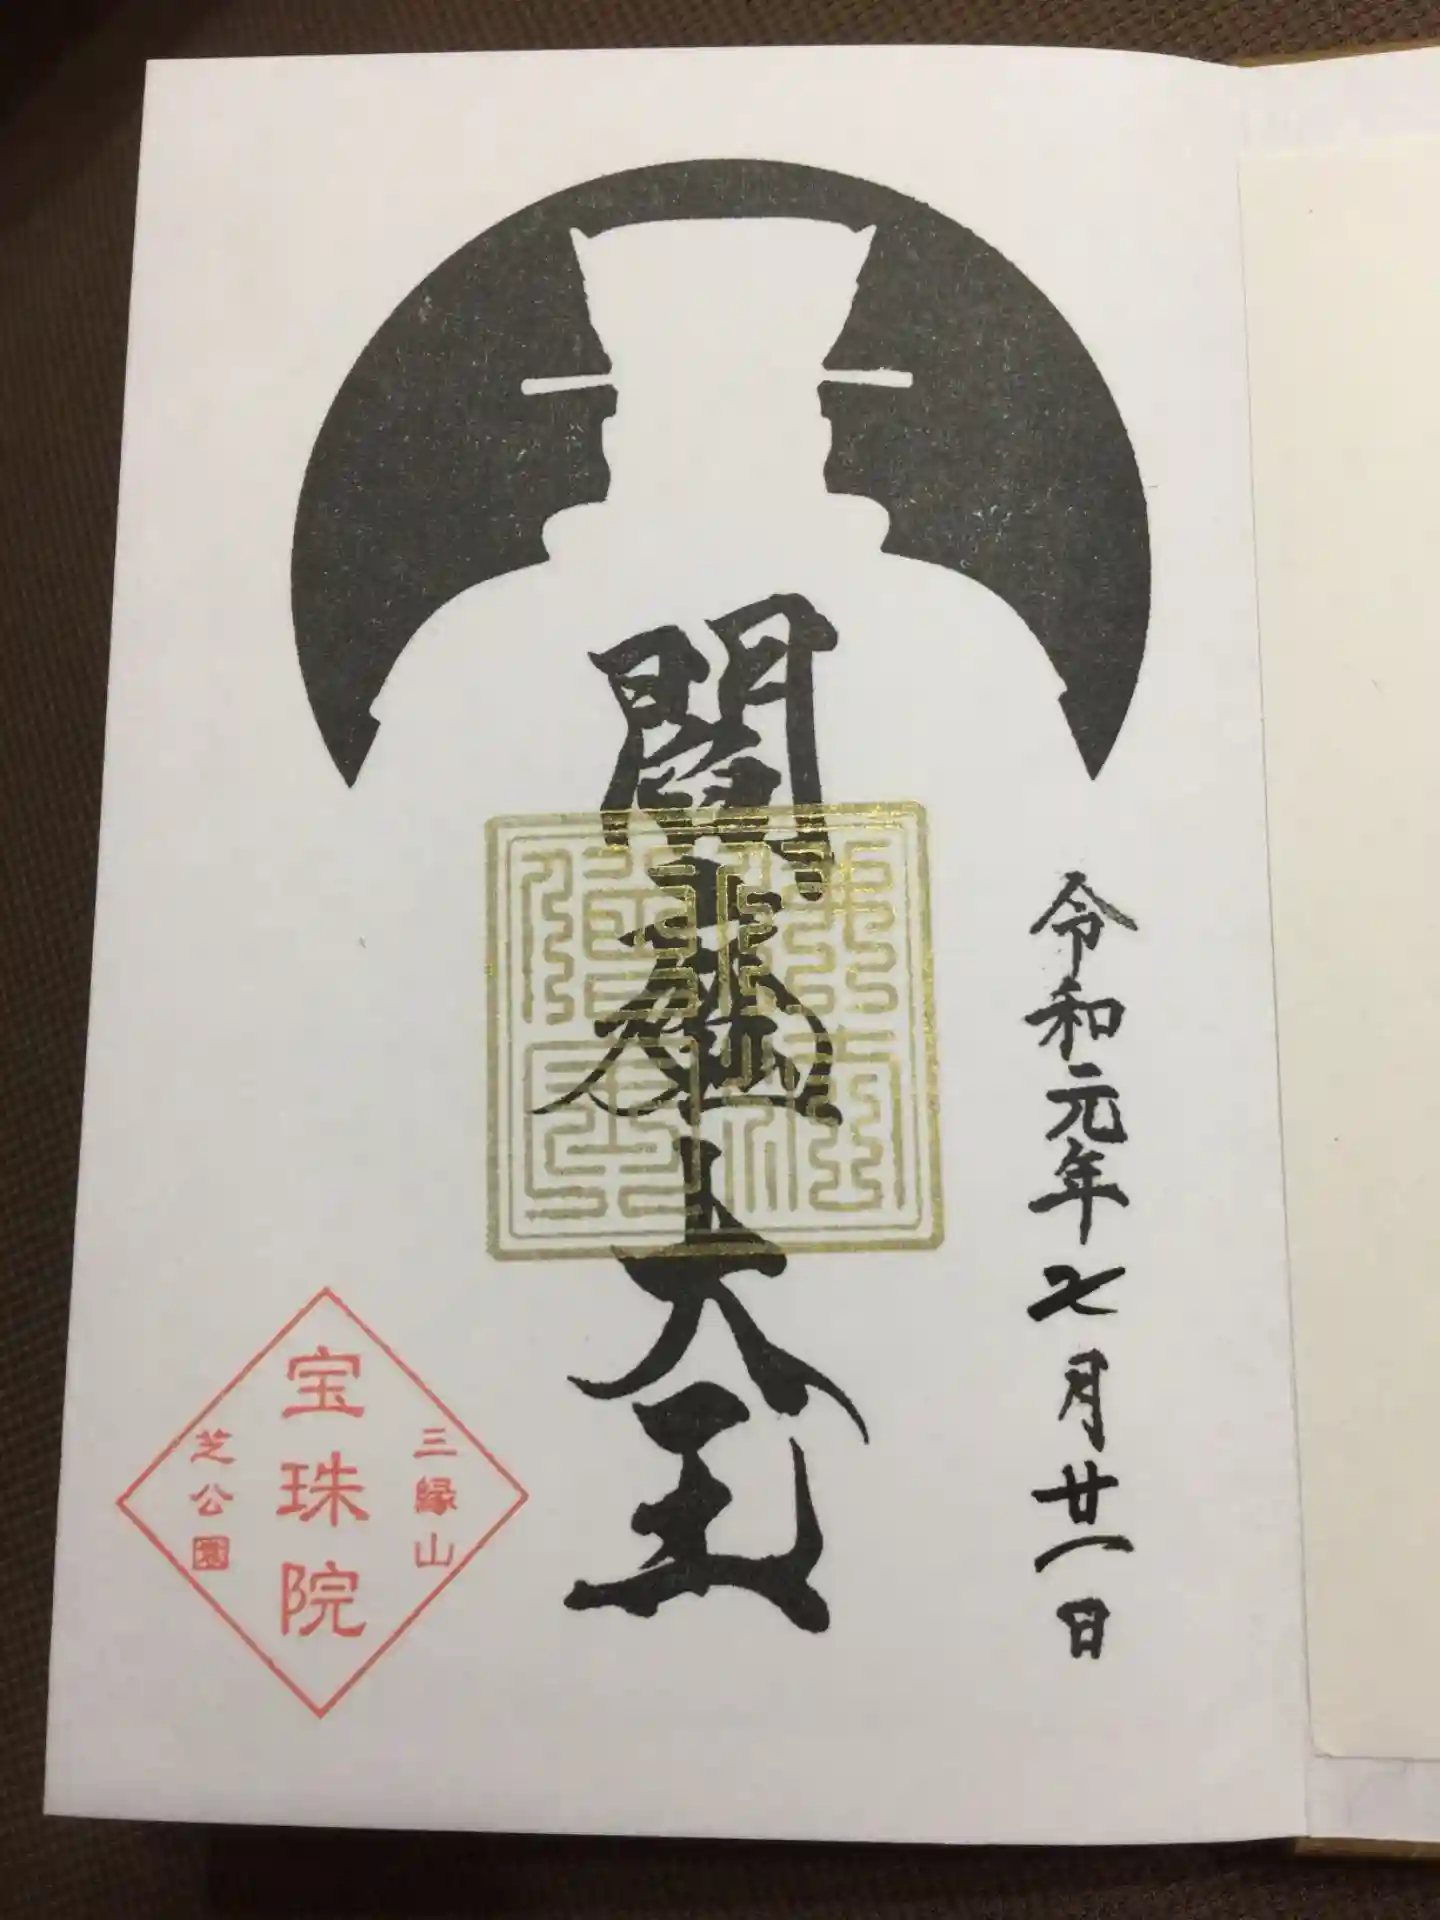 令和元年七月廿一日
閻魔大王
三縁山
宝珠院
芝公園